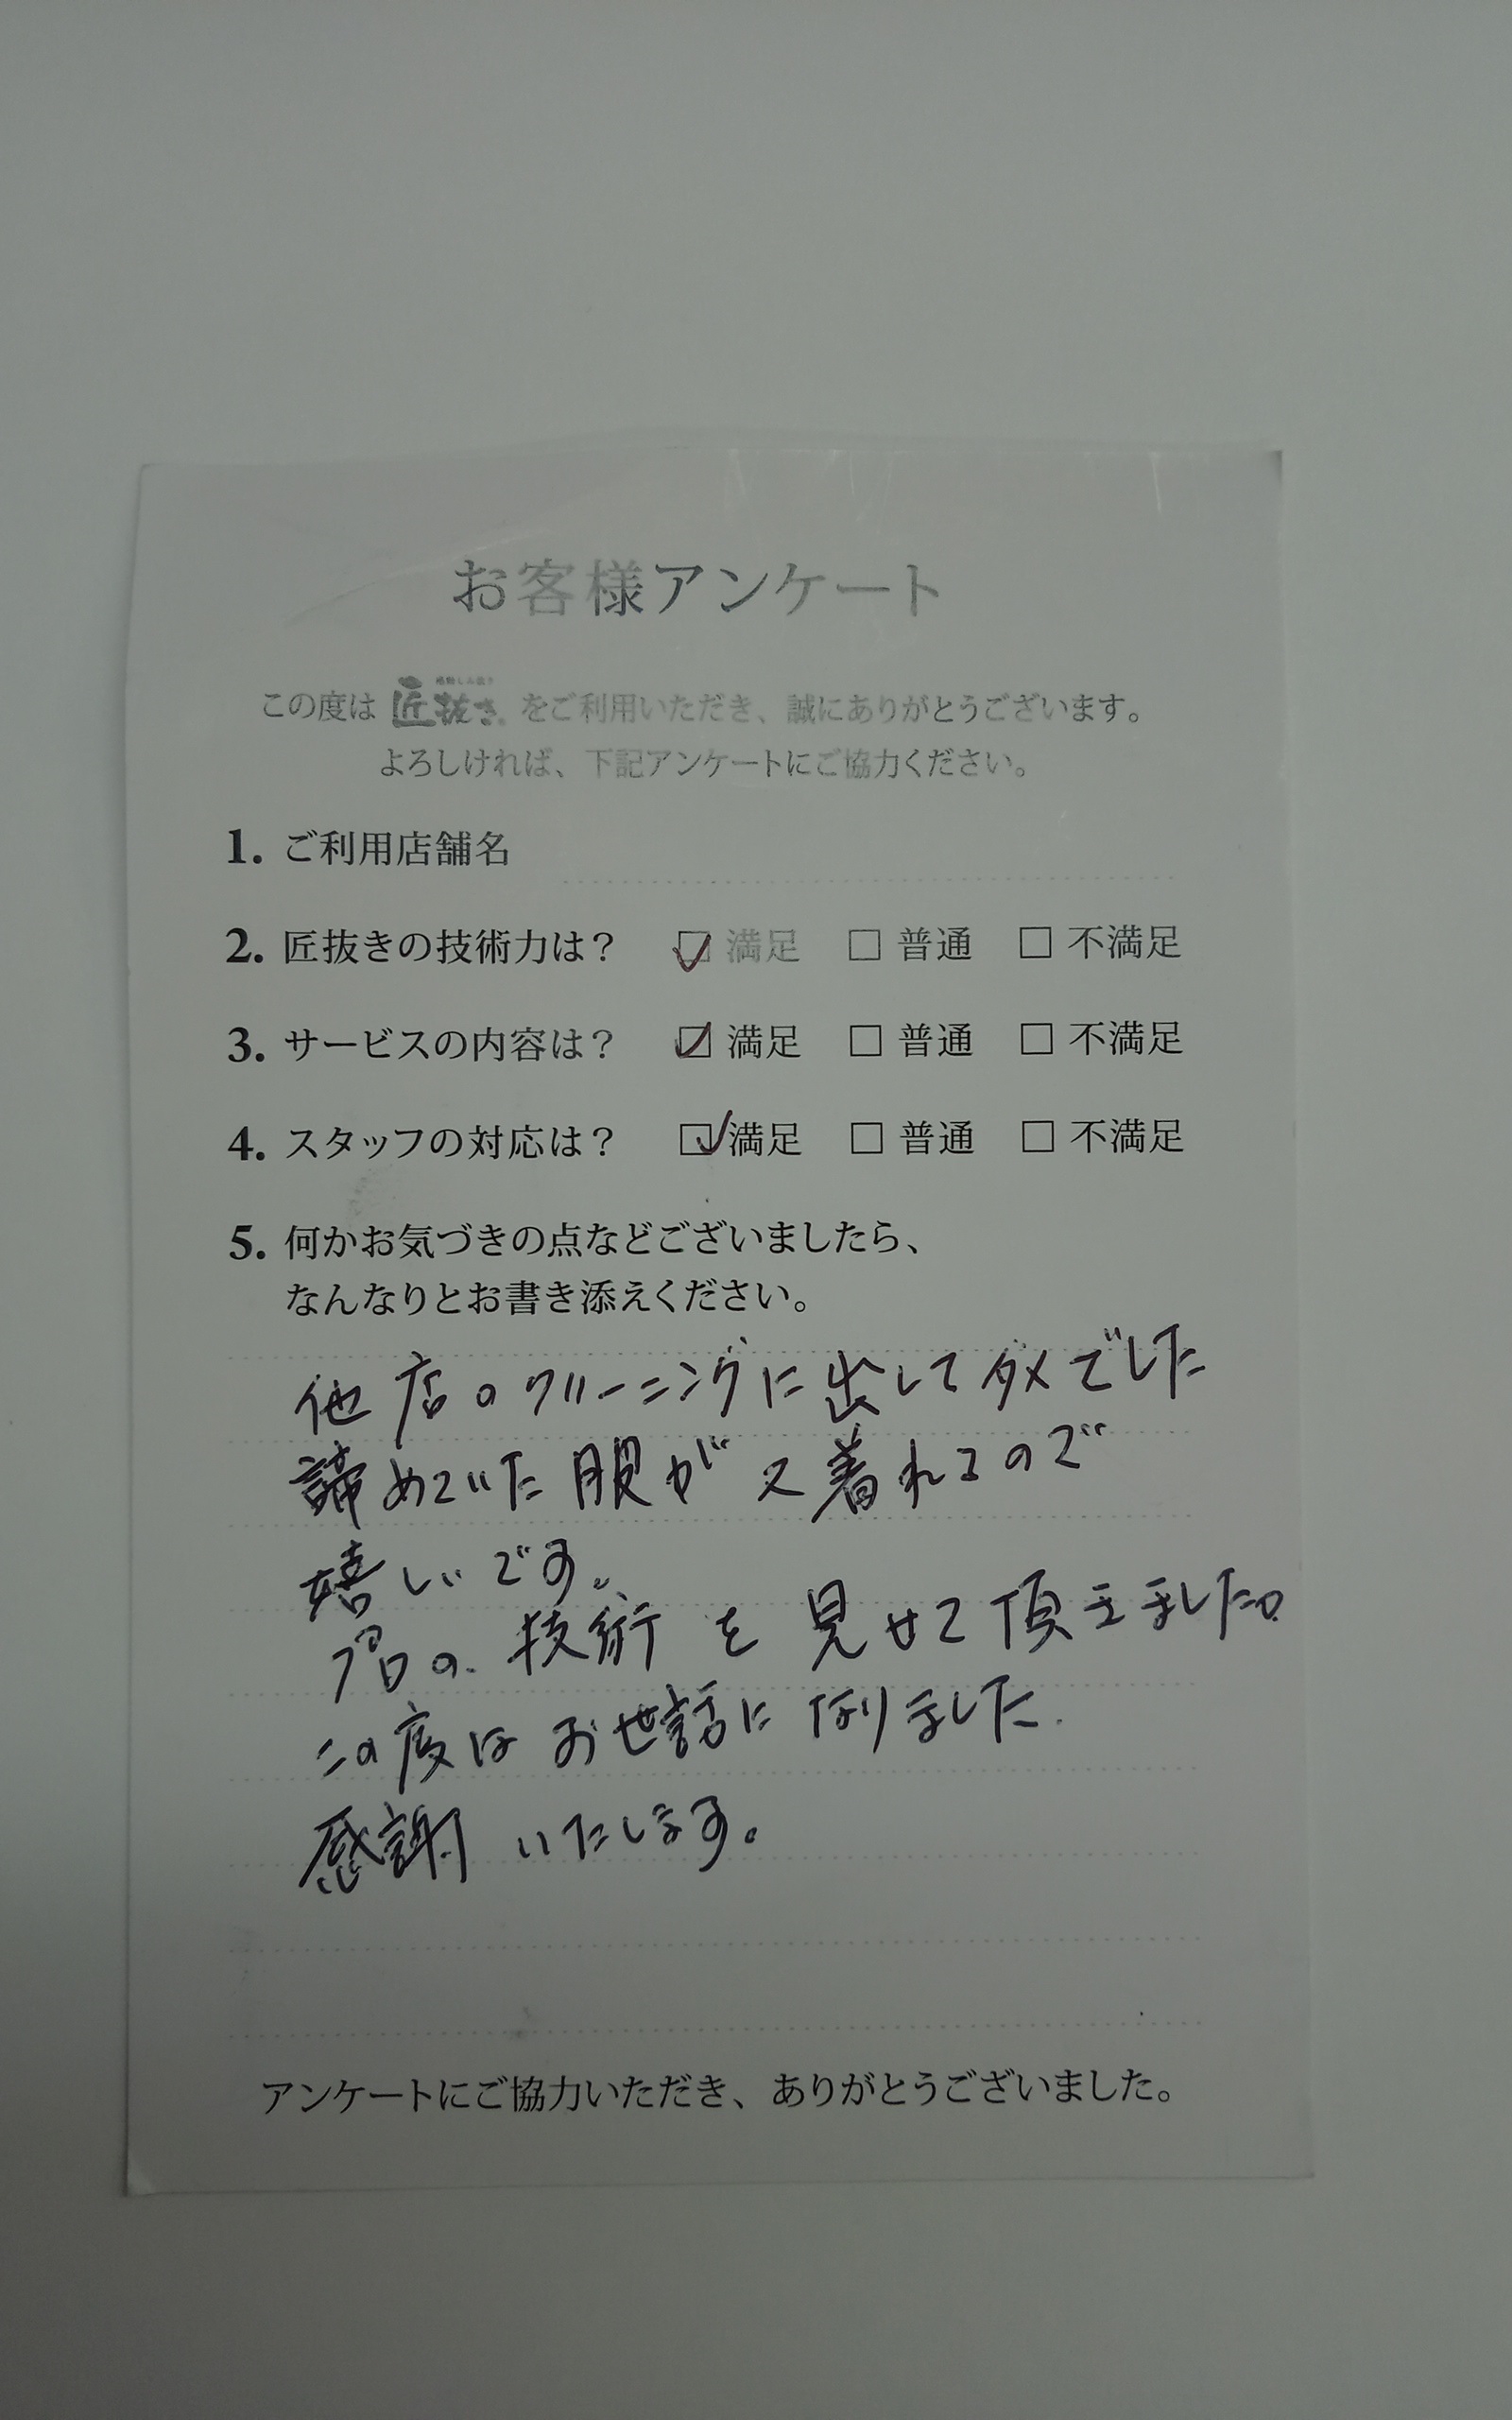 お客様アンケート
この度は 匠抜き をご利用いただき、誠にありがとうございます。
よろしければ、下記アンケートにご協力ください。
1. ご利用店舗名
2. 匠抜きの技術力は? ☑ 満足 □ 普通 □ 不満足
3. サービスの内容は? ☑ 満足 □ 普通 □ 不満足
4. スタッフの対応は? ☑ 満足 □ 普通 □ 不満足
5. 何かお気づきの点などございましたら、
なんなりとお書き添えください。
他店のクリーニングに出してダメでした
諦めていた服が又着れるので
嬉しいです。
プロの技術を見せて頂きました。
この度はお世話になりました.
感謝いたします。
アンケートにご協力いただき、ありがとうございました。